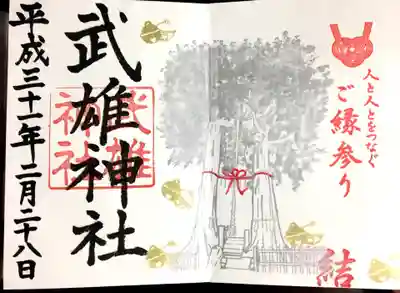 人と人とをつなぐ
ご縁参り
結
武雄神社
武雄
神社
平成三十一年二月二十八日